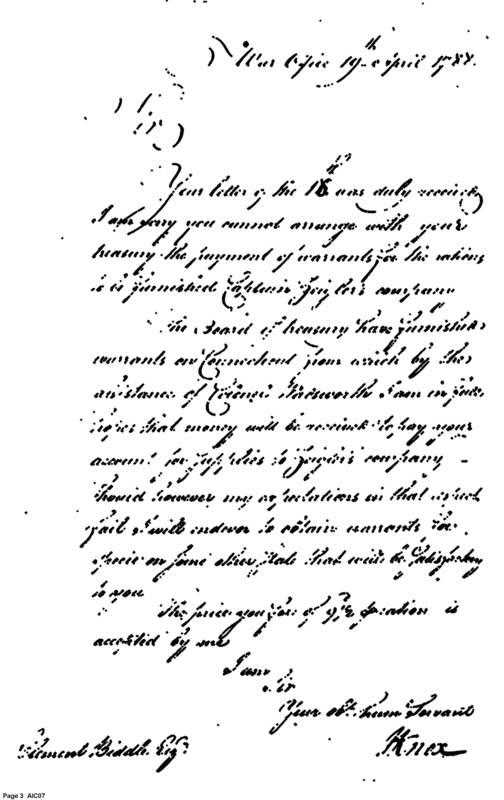 War Office 19th April 1788.
Sir
Your letter of the 16th was duly received
I am sorry you cannot arrange with your
treasury the payment of warrants for the rations
to be furnished Captain Zeigler's company
The Board of treasury have furnished
warrants on Connecticut from which by the
assistance of Colonel Wadsworth I am in full
hopes that money will be received to pay your
account for supplies to Zeigler's company –
Should however my expectations in that respect
fail I will endevor to obtain warrants for
specie on some other State that will be satisfactory
to you
The price you fix of ration is
accepted by me
I am
Sir
Your obt. hum Servant
HKnox
Clement Biddle Esq.
Page 3 AIC07